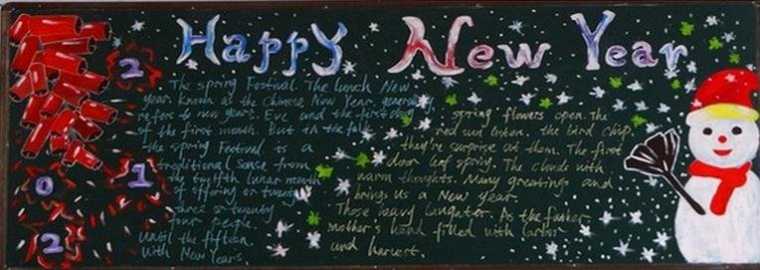 Happy New Year
2
0
1
2
The Spring Festival. The lunch New
year known as the Chinese New Year, generally
refers to new years. Eve and the first day
of the first month. But in the folk
the spring Festival is a
traditional sense from
the twelfth lunar month
of offering or twenty
three or twenty
four people.
Until the fifteen
With New Years
spring flowers open. The
red sun listen. the bird chip
they're surprise at them. The first
door leaf spring. The clouds with
warm thoughts. Many greetings and
brings us a New year.
Those heavy laughter. As the
mother's hand filled with labor
and harvest.